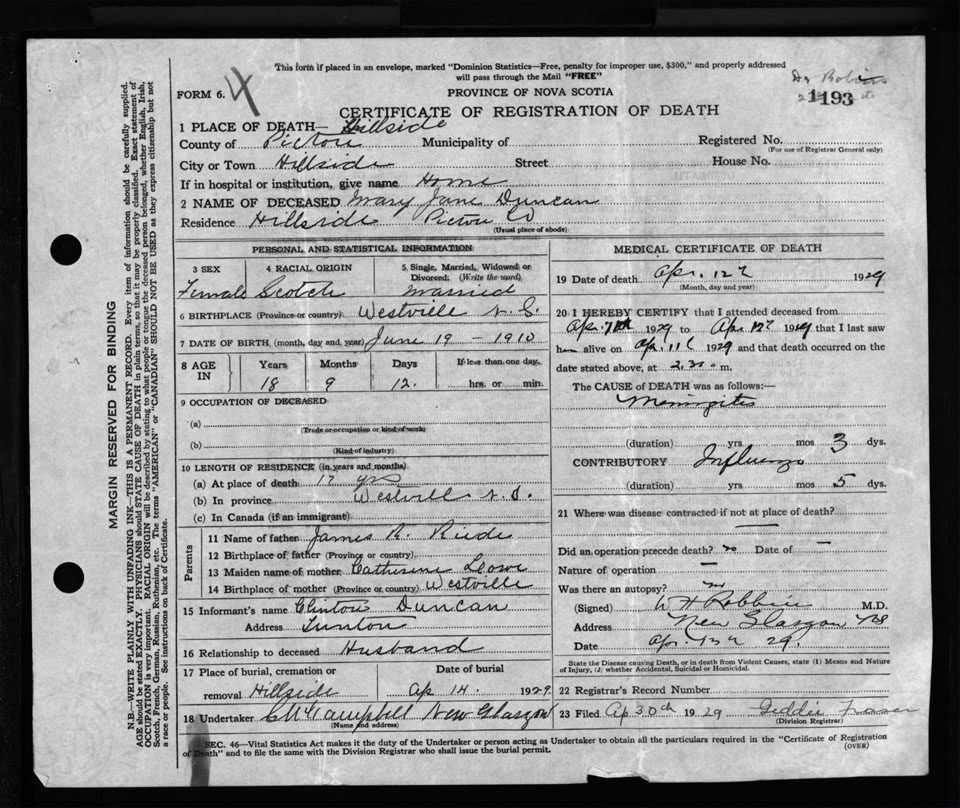 This form if placed in an envelope, marked "Dominion Statistics—Free, penalty for improper use, $300," and properly addressed
will pass through the Mail "FREE"
FORM 6. 4
PROVINCE OF NOVA SCOTIA
CERTIFICATE OF REGISTRATION OF DEATH
1193
1 PLACE OF DEATH— Hillside
County of Pictou Municipality of Registered No.
(For use of Registrar General only)
City or Town Hillside Street House No.
If in hospital or institution, give name Home
2 NAME OF DECEASED Mary Jane Duncan
Residence Hillside Pictou Co
(Usual place of abode)
PERSONAL AND STATISTICAL INFORMATION
3 SEX 4 RACIAL ORIGIN 5. Single, Married, Widowed or Divorced. (Write the word)
Female Scotch Married
6 BIRTHPLACE (Province or country) Westville N.S.
7 DATE OF BIRTH, (month, day and year) June 19 - 1910
8 AGE IN Years Months Days If less than one day.
18 9 12. hrs. or min.
9 OCCUPATION OF DECEASED
(a)
(Trade or occupation or kind of work)
(b)
(Kind of industry)
10 LENGTH OF RESIDENCE (in years and months)
(a) At place of death 17 yrs
(b) In province Westville N.S.
(c) In Canada (if an immigrant)
Parents
11 Name of father James R.
12 Birthplace of father (Province or country)
13 Maiden name of mother Catherine Lowe
14 Birthplace of mother (Province or country) Westville
15 Informant's name Clinton Duncan
Address
16 Relationship to deceased Husband
17 Place of burial, cremation or Date of burial
removal Hillside Ap 14. 1929.
18 Undertaker Campbell New Glasgow
(Name and address)
MEDICAL CERTIFICATE OF DEATH
19 Date of death Apr. 12th 1929
(Month, day and year)
20 I HEREBY CERTIFY that I attended deceased from
Apr. 7th 1929 to Apr 12 1929 that I last saw
h alive on Apr. 11th 1929 and that death occurred on the
date stated above, at 2.30 m.
The CAUSE of DEATH was as follows:—
Meningitis
(duration) yrs mos 3 dys.
CONTRIBUTORY Influenza
(duration) yrs mos 5 dys.
21 Where was disease contracted if not at place of death?
—
Did an operation precede death? no Date of —
Nature of operation —
Was there an autopsy? no
(Signed) W H Robbins M.D.
Address New Glasgow NS
Date Apr. 12th 29.
State the Disease causing Death, or in death from Violent Causes, state (1) Means and Nature
of Injury, (2) whether Accidental, Suicidal or Homicidal.
22 Registrar's Record Number
23 Filed Ap 30th 1929 Geddie Fraser
(Division Registrar)
SEC. 46—Vital Statistics Act makes it the duty of the Undertaker or person acting as Undertaker to obtain all the particulars required in the "Certificate of Registration
of Death" and to file the same with the Division Registrar who shall issue the burial permit. (OVER)
MARGIN RESERVED FOR BINDING
N.B.—WRITE PLAINLY WITH UNFADING INK—THIS IS A PERMANENT RECORD. Every item of information should be carefully supplied.
AGE should be stated EXACTLY. PHYSICIANS should STATE CAUSE OF DEATH in plain terms, so that it may be properly classified. Exact statement of
OCCUPATION is very important. RACIAL ORIGIN will be described by stating to what people or tongue the deceased person belonged, whether English, Irish,
Scotch, French, German, Russian, Ruthenian, etc. The terms "AMERICAN" or "CANADIAN" SHOULD NOT BE USED as they express citizenship but not
a race or people. See instructions on back of Certificate.